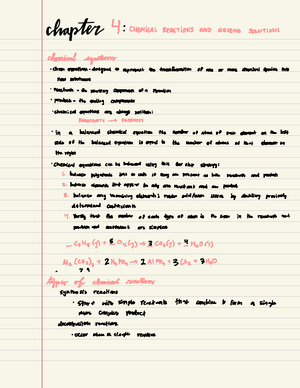 chapter 4: CHEMICAL REACTIONS AND AQUEOUS SOLUTIONS
chemical equations
· chem equations - designed to represents the transformation of one or more chemical species into
new substances
· Reactants - the starting components of a reaction
· products - the ending components
· chemical equations are always written:
Reactants → Products
· In a balanced chemical equation the number of atoms of each element on the left
side of the balanced equation is equal to the number of atoms of that element on
the right
· Chemical equations can be balanced using this four step strategy:
1. balance polyatomic ions as units if they are present as both reactants and products
2. balance elements that appear in only one reactant and one product
3. balance any remaining elements
determined coefficients
4. Verify that the number of each type of atom is the same in the reactants and
products and coefficients are simplest
types of chemical reactions
synthesis reactions
· start with simple reactants that combine to form a single
more complex product
decomposition reactions
· occur when a single reactant